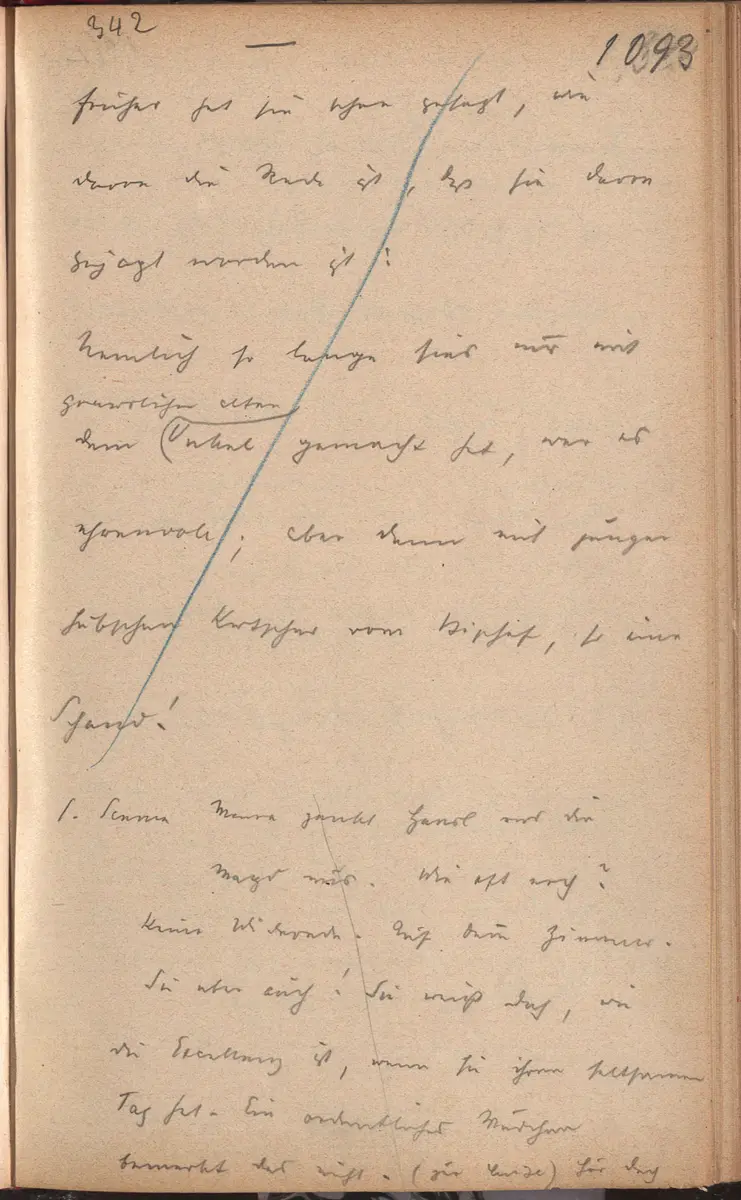 342
—
1093
früher hat sie schon gesagt, wie
davon die Rede ist, daß sie davon
gejagt worden ist:
Nemlich so lange sies nur mit
grauslichen alten
dem Onkel gemacht hat, war es
ehrenvoll; aber dann mit jungen
hübschen Kutscher vom Bischof, so eine
Schand!
5. Scene Mena zankt Hansl und die
Magd aus. Wie oft noch?
Keine Widerrede. Auf dem Zimmer.
Sie aber auch! Sie weiß doch, wie
die Excellenz ist, wenn sie ihren seltsamen
Tag hat. Ein ordentliches Mädchen
bemerkt das nicht. (zur ) Hör doch